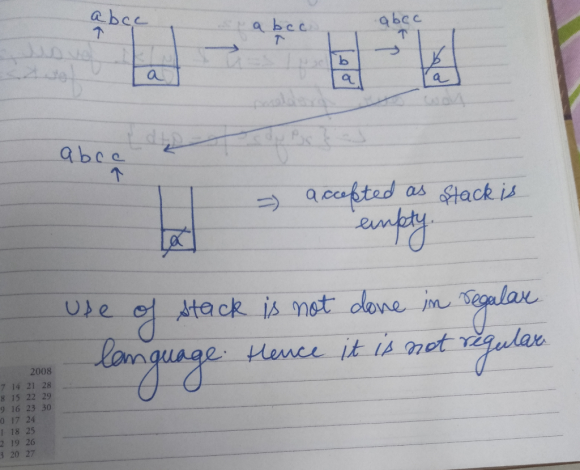 abcc a bcc abcc
a b a b a
abcc
a
⇒ accepted as stack is
empty.
Use of stack is not done in regular
language. Hence it is not regular
2008
7 14 21 28
8 15 22 29
9 16 23 30
0 17 24
1 18 25
2 19 26
3 20 27